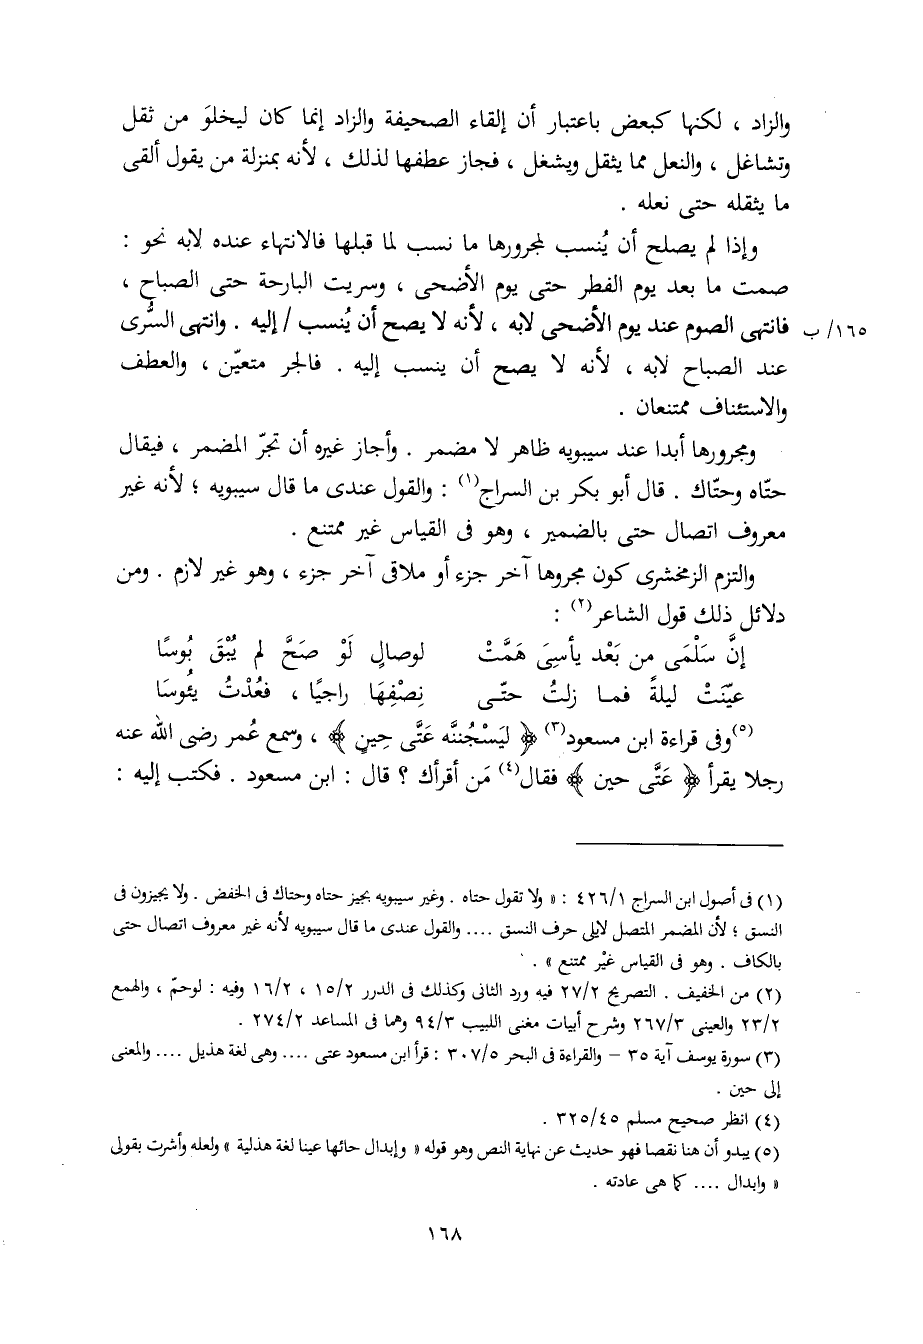 والزاد ، لكنها كبعض باعتبار أن إلقاء الصحيفة والزاد إنما كان ليخلوَ من ثقل
وتشاغل ، والنعل مما يثقل ويشغل ، فجاز عطفها لذلك ، لأنه بمنزلة من يقول ألقى
ما يثقله حتى نعله .
وإذا لم يصلح أن يُنسب لمجرورها ما نسب لما قبلها فالانتهاء عنده لابه نحو :
صمت ما بعد يوم الفطر حتى يوم الأضحى ، وسريت البارحة حتى الصباح ،
١٦٥/ ب فانتهى الصوم عند يوم الأضحى لابه ، لأنه لا يصح أن يُنسب / إليه . وانتهى السُّرى
عند الصباح لابه ، لأنه لا يصح أن ينسب إليه . فالجر متعيّن ، والعطف
والاستئناف ممتنعان .
ومجرورها أبدا عند سيبويه ظاهر لا مضمر . وأجاز غيره أن تجرّ المضمر ، فيقال
حتّاه وحتّاك . قال أبو بكر بن السراج(١) : والقول عندى ما قال سيبويه ؛ لأنه غير
معروف اتصال حتى بالضمير ، وهو فى القياس غير ممتنع .
والتزم الزمخشرى كون مجروها آخر جزء أو ملاقى آخر جزء ، وهو غير لازم . ومن
دلائل ذلك قول الشاعر(٢) :
إنَّ سَلْمَى من بَعْد يأسِىَ هَمَّتْ لوصالٍ لَوْ صَحَّ لم يُبْقِ بُوسًا
عيّنَتْ ليلةً فمـا زلتُ حتّـى نِصْفِهَا راجيًا ، فعُدْتُ يئُوسَا
(٥)وفى قراءة ابن مسعود(٣) ﴿ لَيَسْجُننَّه عَتَّى حِينٍ ﴾ ، وسمع عُمر رضى الله عنه
رجلا يقرأ ﴿ عَتَّى حين ﴾ فقال(٤) مَن أقرأك ؟ قال : ابن مسعود . فكتب إليه :
(١) فى أصول ابن السراج ٤٢٦/١ : « ولا تقول حتاه . وغير سيبويه يجيز حتاه وحتاك فى الخفض . ولا يجيزون فى
النسق ؛ لأن المضمر المتصل لايلى حرف النسق .... والقول عندى ما قال سيبويه لأنه غير معروف اتصال حتى
بالكاف . وهو فى القياس غيْر ممتنع » .
(٢) من الخفيف . التصريح ٢٧/٢ فيه ورد الثانى وكذلك فى الدرر ١٥/٢ ، ١٦/٢ وفيه : لوحمّ ، والهمع
٢٣/٢ والعينى ٢٦٧/٣ وشرح أبيات مغنى اللبيب ٩٤/٣ وهما فى المساعد ٢٧٤/٢ .
(٣) سورة يوسف آية ٣٥ – والقراءة فى البحر ٣٠٧/٥ : قرأ ابن مسعود عتى .... وهى لغة هذيل .... والمعنى
إلى حين .
(٤) انظر صحيح مسلم ٣٢٥/٤٥ .
(٥) يبدو أن هنا نقصا فهو حديث عن نهاية النص وهو قوله « وإبدال حائها عينا لغة هذلية » ولعله وأشرت بقولى
« وابدال .... كما هى عادته .
١٦٨